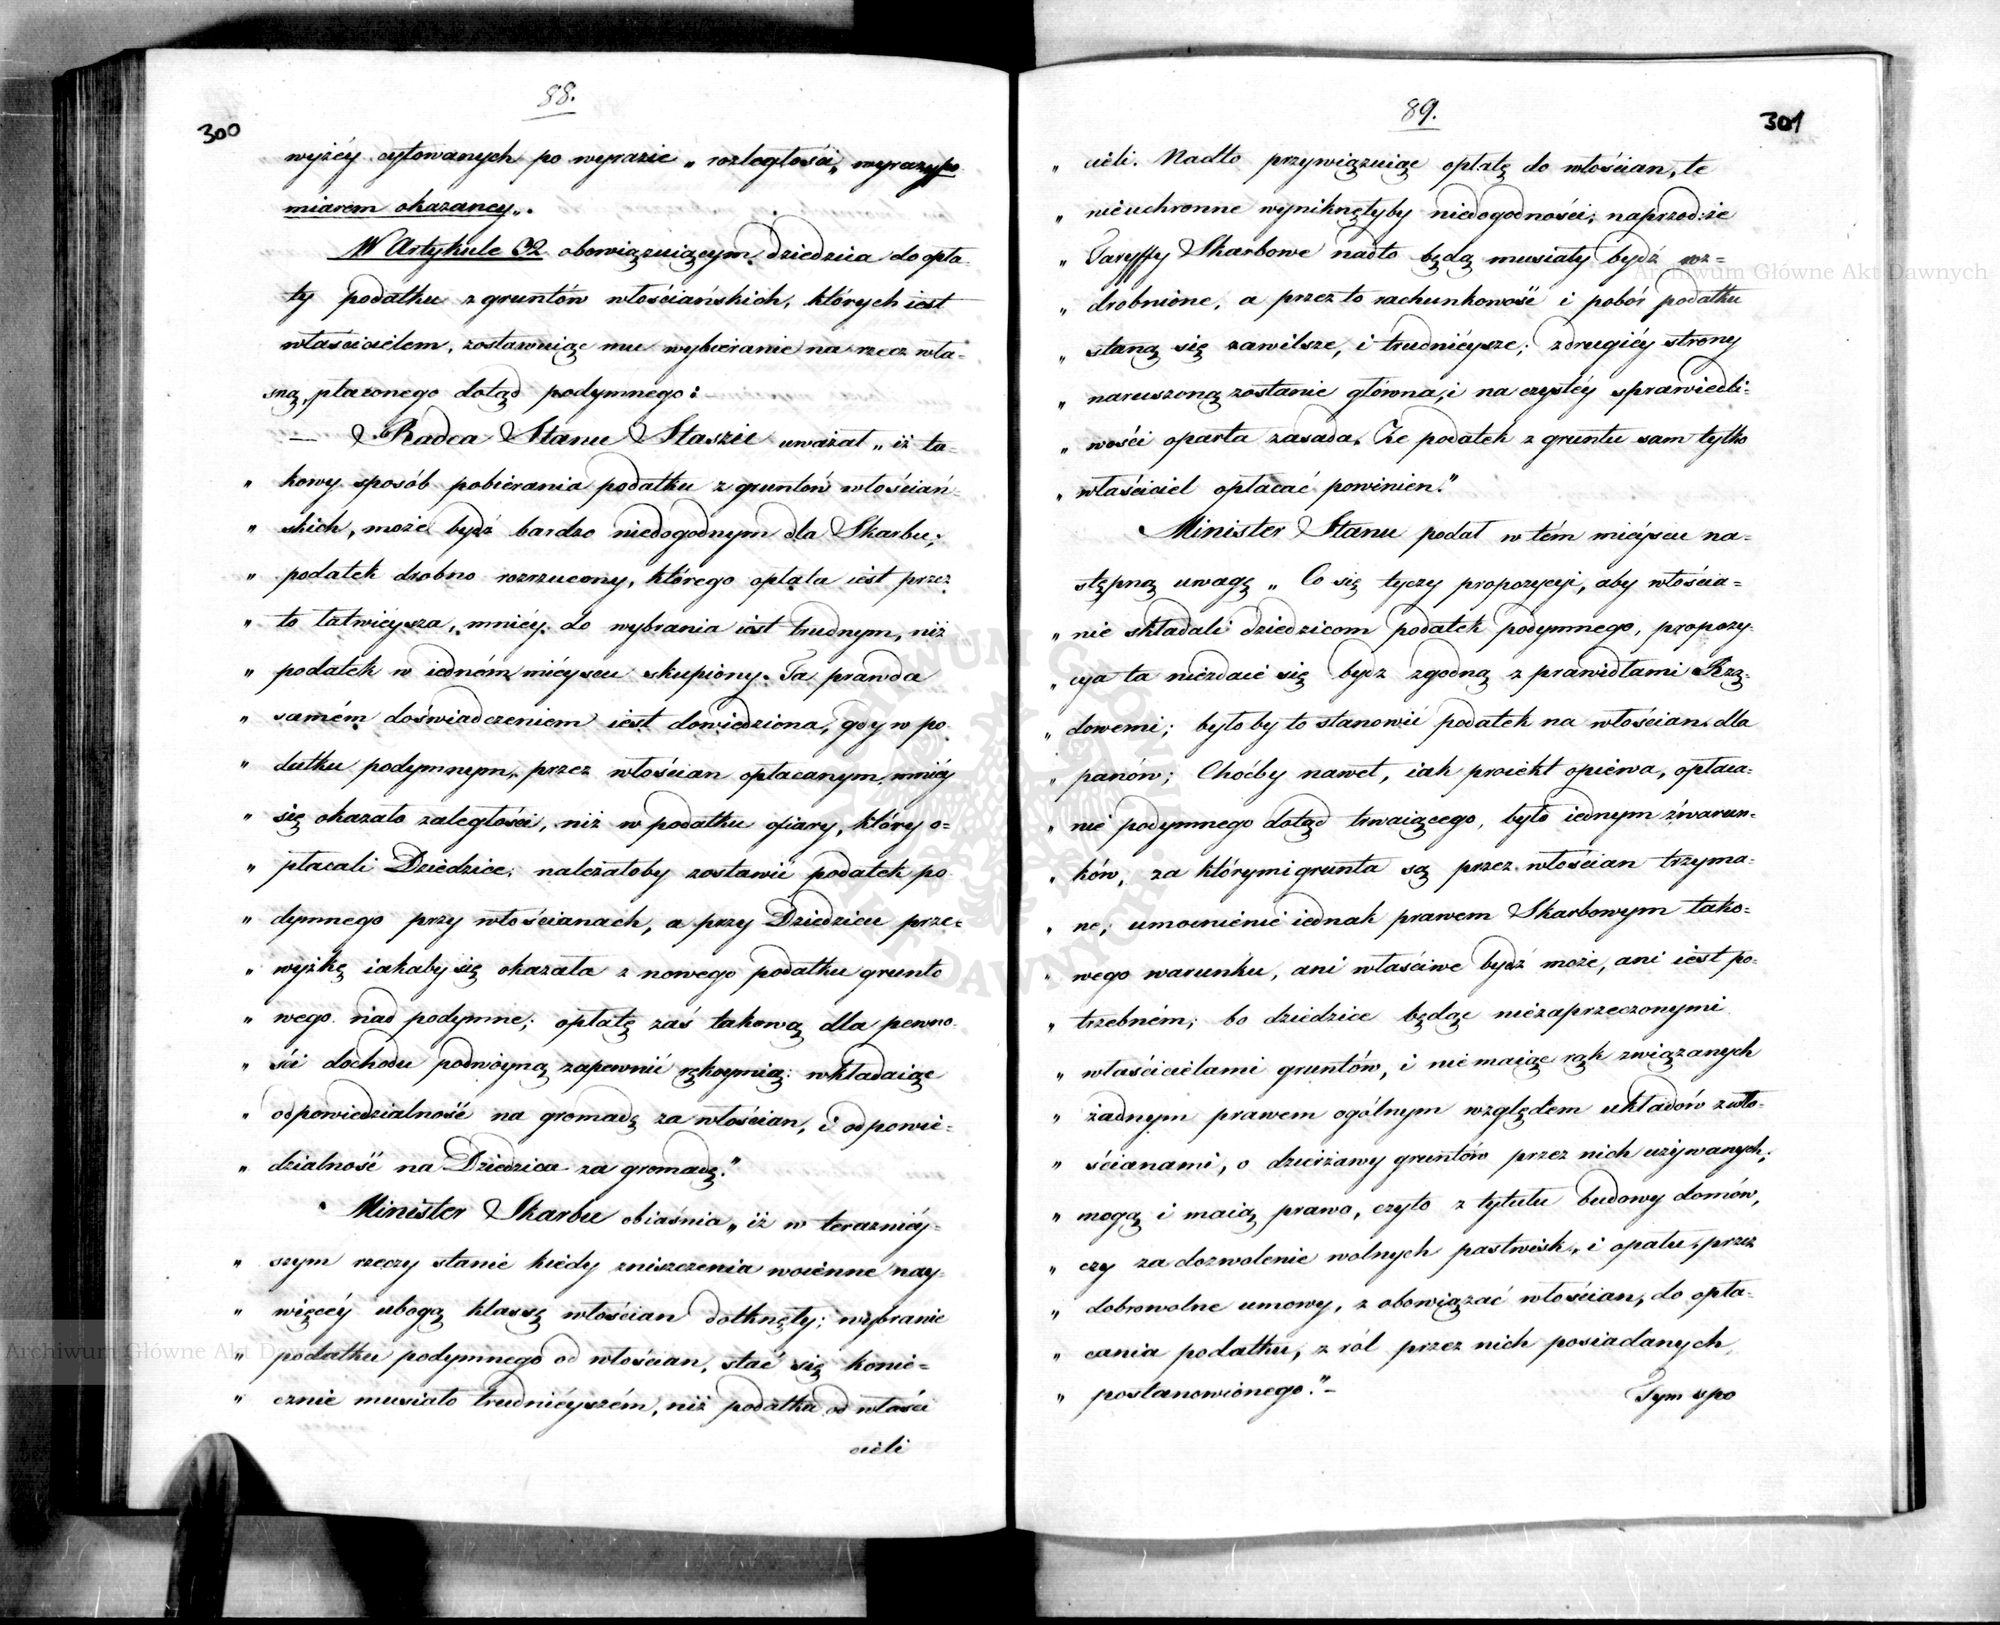 88.
300
wyżéy cytowanych po wyrazie „rozległości„ wyrazy po
miarem okazaney„.
W Artykule 32 obowiązuiącym Dziedzica do opła-
ty podatku z gruntów włościańskich, których iest
właścicielem, zostawuiąc mu wybieranie na rzecz wła-
sną, płaconego dotąd podymnego:
— Radca Stanu Staszic uważał „iż ta-
„ kowy sposób pobierania podatku z gruntów włościań-
„ skich, może bydź bardzo niedogodnym dla Skarbu;
„ podatek drobno rozrzucony, którego opłata iest przez
„ to łatwiéysza, mniéy do wybrania iest trudnym, niż
„ podatek w iedném miéyscu skupiony. Ta prawda
„ samém doświadczeniem iest dowiedziona, gdy w po
„ datku podymnym, przez włościan opłacanym, mniéy
„ się okazało zaległości, niż w podatku ofiary, który o-
„ płacali Dziedzice; należałoby zostawić podatek po
„ dymnego przy włościanach, a przy Dziedzicu prze-
„ wyżkę iakaby się okazała z nowego podatku grunto
„ wego nad podymne; opłatę zaś takową dla pewno-
„ ści dochodu podwóyną zapewnić rękoymią: wkładaiąc
„ odpowiedzialność na gromadę za włościan, i odpowie-
„ dzialność na Dziedzica za gromadę."
Minister Skarbu obiaśnia „iż w terazniéy-
„ szym rzeczy stanie kiedy zniszczenia woienne nay-
„ więcéy ubogą klassę włościan dotknęły; wybranie
„ podatku podymnego od włościan, stać się konie-
„ cznie musiało trudniéyszém, niż podatku od właści
cieli
89.
301
„ cieli. Nadto przywiązuiąc opłatę do włościan, te
„ nieuchronne wyniknęłyby niedogodności; naprzod: że
„ Taryffy Skarbowe nadto będą musiały bydź roz-
„ drobnione, a przez to rachunkowość i pobór podatku
„ staną się zawilsze, i trudniéysze; z drugiéy strony
„ naruszoną zostanie główna, i na czystéy sprawiedli-
„ wości oparta zasada. Że podatek z gruntu sam tylko
„ właściciel opłacać powinien."
Minister Stanu podał w tém miéyscu na-
stępną uwagę „Co się tyczy propozycyi, aby włościa-
„ nie składali dziedzicom podatek podymnego, propozy-
„ cya ta niezdaie się bydz zgodną z prawidłami Rzą-
„ dowemi; byłoby to stanowić podatek na włościan dla
„ panów; Choćby nawet, iak proiekt opiewa, opłaca-
„ nie podymnego dotąd trwaiącego, było iednym z warun-
„ ków, za którymi grunta są przez włościan trzyma-
„ ne; umocnienie iednak prawem Skarbowym tako-
„ wego warunku, ani właściwe bydź może, ani iest po-
„ trzebném; bo dziedzice będąc niezaprzeczonymi
„ właścicielami gruntów, i nie maiąc rąk związanych
„ żadnym prawem ogólnym względem układów z wło-
„ ścianami, o dzierżawy gruntów przez nich używanych;
„ mogą i maią prawo, czyto z tytułu budowy domów,
„ czy za dozwolenie wolnych pastwisk, i opału, przez
„ dobrowolne umowy, zobowiązać włościan, do opła-
„ cania podatku, z ról przez nich posiadanych,
„ postanowionego."—
Tym spo
Archiwum Główne Akt Dawnych
Archiwum Główne Akt Dawnych